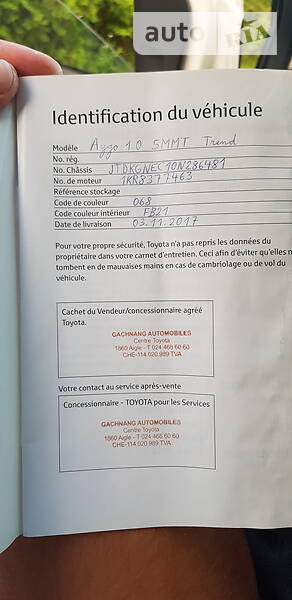 auto RIA
Identification du véhicule
Modèle Aygo 1.0 5MMT Trend
No. rég.
No. Châssis JTDKGNEC10N286481
No. de moteur 1KR8377463
Référence stockage
Code de couleur 068
Code couleur intérieur FB21
Date de livraison 03.11.2017
Pour votre propre sécurité, Toyota n'a pas repris les données du
propriétaire dans votre carnet d'entretien. Ceci afin d'éviter qu'elles n
tombent en de mauvaises mains en cas de cambriolage ou de vol du
véhicule.
Cachet du Vendeur/concessionnaire agréé
Toyota.
GACHNANG AUTOMOBILES
Centre Toyota
1860 Aigle - T 024 468 60 60
CHE-114.020.989 TVA
Votre contact au service après-vente
Concessionnaire - TOYOTA pour les Services
GACHNANG AUTOMOBILES
Centre Toyota
1860 Aigle - T 024 468 60 60
CHE-114.020.989 TVA